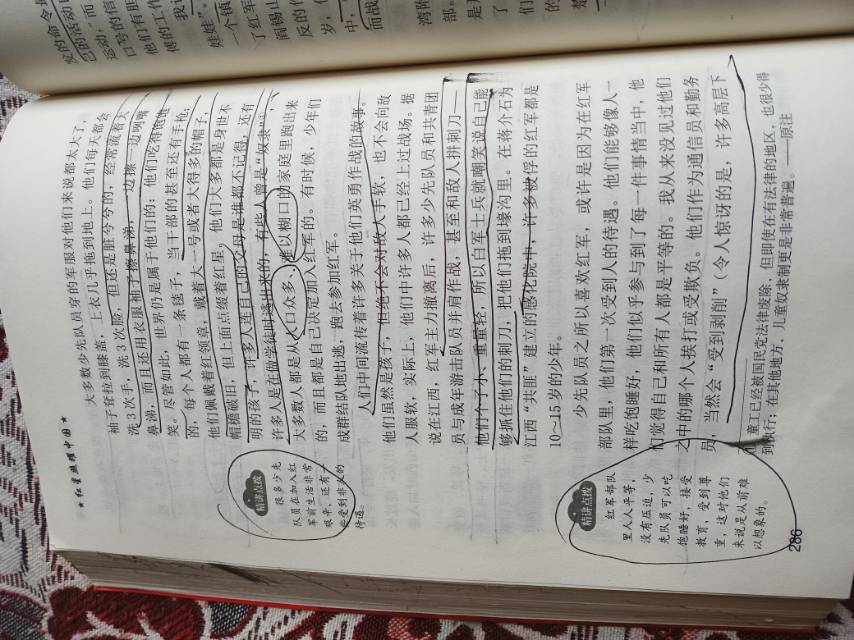 发的命令
己的活动
运动,而
口号的言
他们有胆
傅的工作
★红星照耀中国★
大多数少先队员穿的军服对他们来说都太大了,
袖子耷拉到膝盖,上衣几乎拖到地上。他们每天都会
洗3次手、洗3次脸,但还是脏兮兮的,经常流着大
鼻涕,而且还用衣服袖子擦鼻涕,一边擦一边咧嘴
笑。尽管如此,世界仍是属于他们的:他们吃得饱饱
的,每个人都有一条毯子,当干部的甚至还有手枪;
他们佩戴着红领章,戴着大一号或者大得多的帽子,
帽檐破旧,但上面点缀着红星。他们大多都是身世不
明的孩子,许多人连自己的父母是谁都不记得,还有
许多人是在做学徒时逃出来的,有些人曾是“奴隶”,
大多数人都是从人口众多、难以糊口的家庭里跑出来
的,而且都是自己决定加入红军的。有时候,少年们
成群结队地出逃,跑去参加红军。
人们中间流传着许多关于他们英勇作战的故事。
他们虽然是孩子,但绝不会对敌人手软,也不会向敌
人服软,实际上,他们中许多人都已经上过战场。据
说在江西,红军主力撤离后,许多少先队员和共青团
员与成年游击队员并肩作战,甚至和敌人拼刺刀——
他们个子小、重量轻,所以白军士兵就嘲笑说自己能
够抓住他们的刺刀,把他们拖到壕沟里。在蒋介石为
江西“共匪”建立的感化院中,许多被俘的红军都是
10~15岁的少年。
少先队员之所以喜欢红军,或许是因为在红军
部队里,他们第一次受到人的待遇。他们能够像人一
样吃饱睡好,他们似乎参与到了每一件事情当中,他
们觉得自己和所有人都是平等的。我从来没见过他们
之中的哪个人挨打或受欺负。他们作为通信员和勤务
员,当然会“受到剥削”(令人惊讶的是,许多高层下
童工已经被国民党法律废除,但即使在有法律的地区,也很少得
到执行;在其他地方,儿童奴隶制更是非常普遍。——原注
精讲点拨
很多少先
队员在加入红
军前生活非常
艰辛,还有一
些受到非人的
待遇。
精讲点拨
红军部队
里人人平等,
没有压迫,少
先队员可以吃
饱睡好,接受
教育,受到尊
重,这对他们
来说是从前难
以想象的。
286